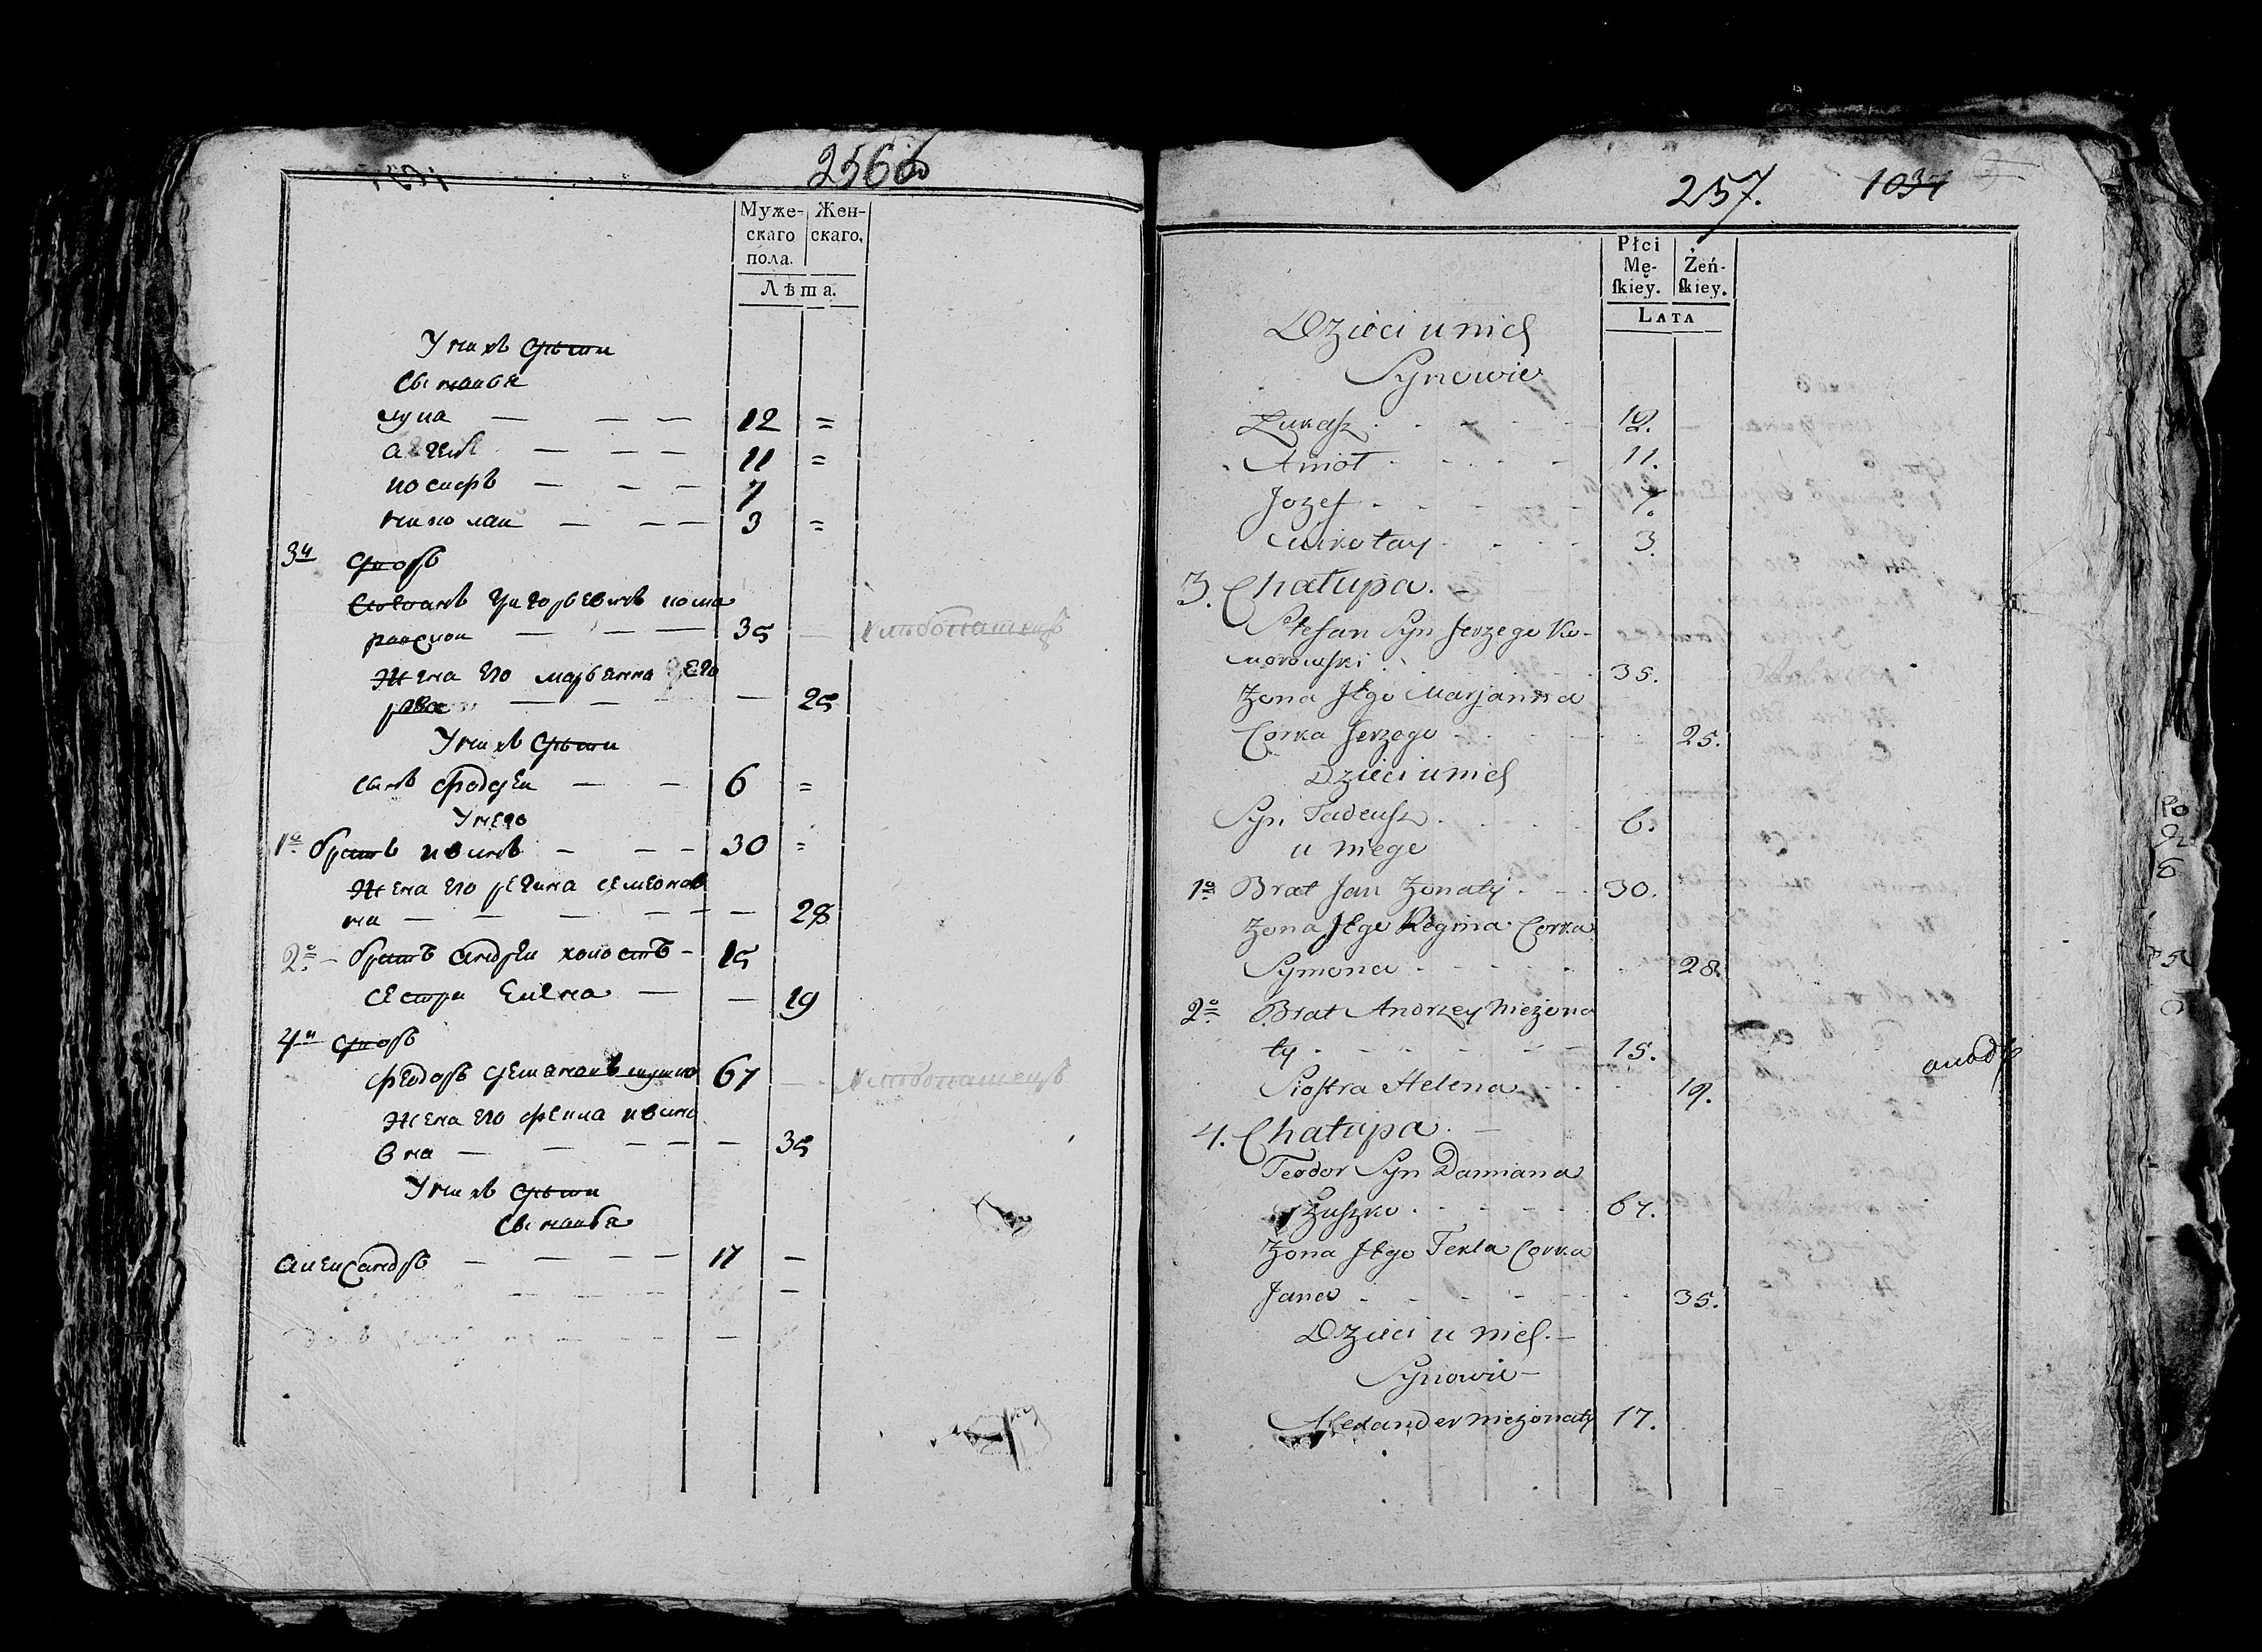 256 б
Муже-
скаго
пола.
Жен-
скаго.
Лѣта.
У нихъ дѣти
Сыновья
лука — — — 12 =
11 =
иосифъ — — — 7
николаи — — — 3 =
3й дворъ
Степанъ Григорьевичъ кома
ровскои — — — 35 —
Жена его марьянна Его
рова — — — 25
У нихъ дѣти
сынъ фадѣеи — — 6 =
У него
1е братъ иванъ — — — 30 =
Жена его регина семенов
на — — — — — — 28
2е — братъ андреи холостъ — 15
сестра Елена — — 19
4й дворъ
феодоръ демяновъ 67 —
Жена его фекла ивано
вна — — — — — 35
У нихъ дѣти
Сыновья
александръ — — — — 17 —
257. 1034
Płci
Mę-
ſkiey.
Żeń-
ſkiey.
LATA
Dzieci u nich
Synowie
Łukasz 12.
Anioł 11.
Jozef 7.
Mikołay 3.
3. Chałupa.
Stefan Syn Jerzego Ko-
morowski 35.
Żona Jego Marjanna
Corka Jerzego 25.
Dzieci u nich
Syn Tadeusz 6.
u niego
1o Brat Jan Żonaty 30.
Żona Jego Regina Corka
Symona 28.
2o Brat Andrzey nieżona
ty 15.
Siostra Helena 19.
4. Chałupa.
Teodor Syn Damiana
67.
Żona Jego Tekla Corka
Jana 35.
Dzieci u nich
Synowie
Alexander nieżonaty 17.